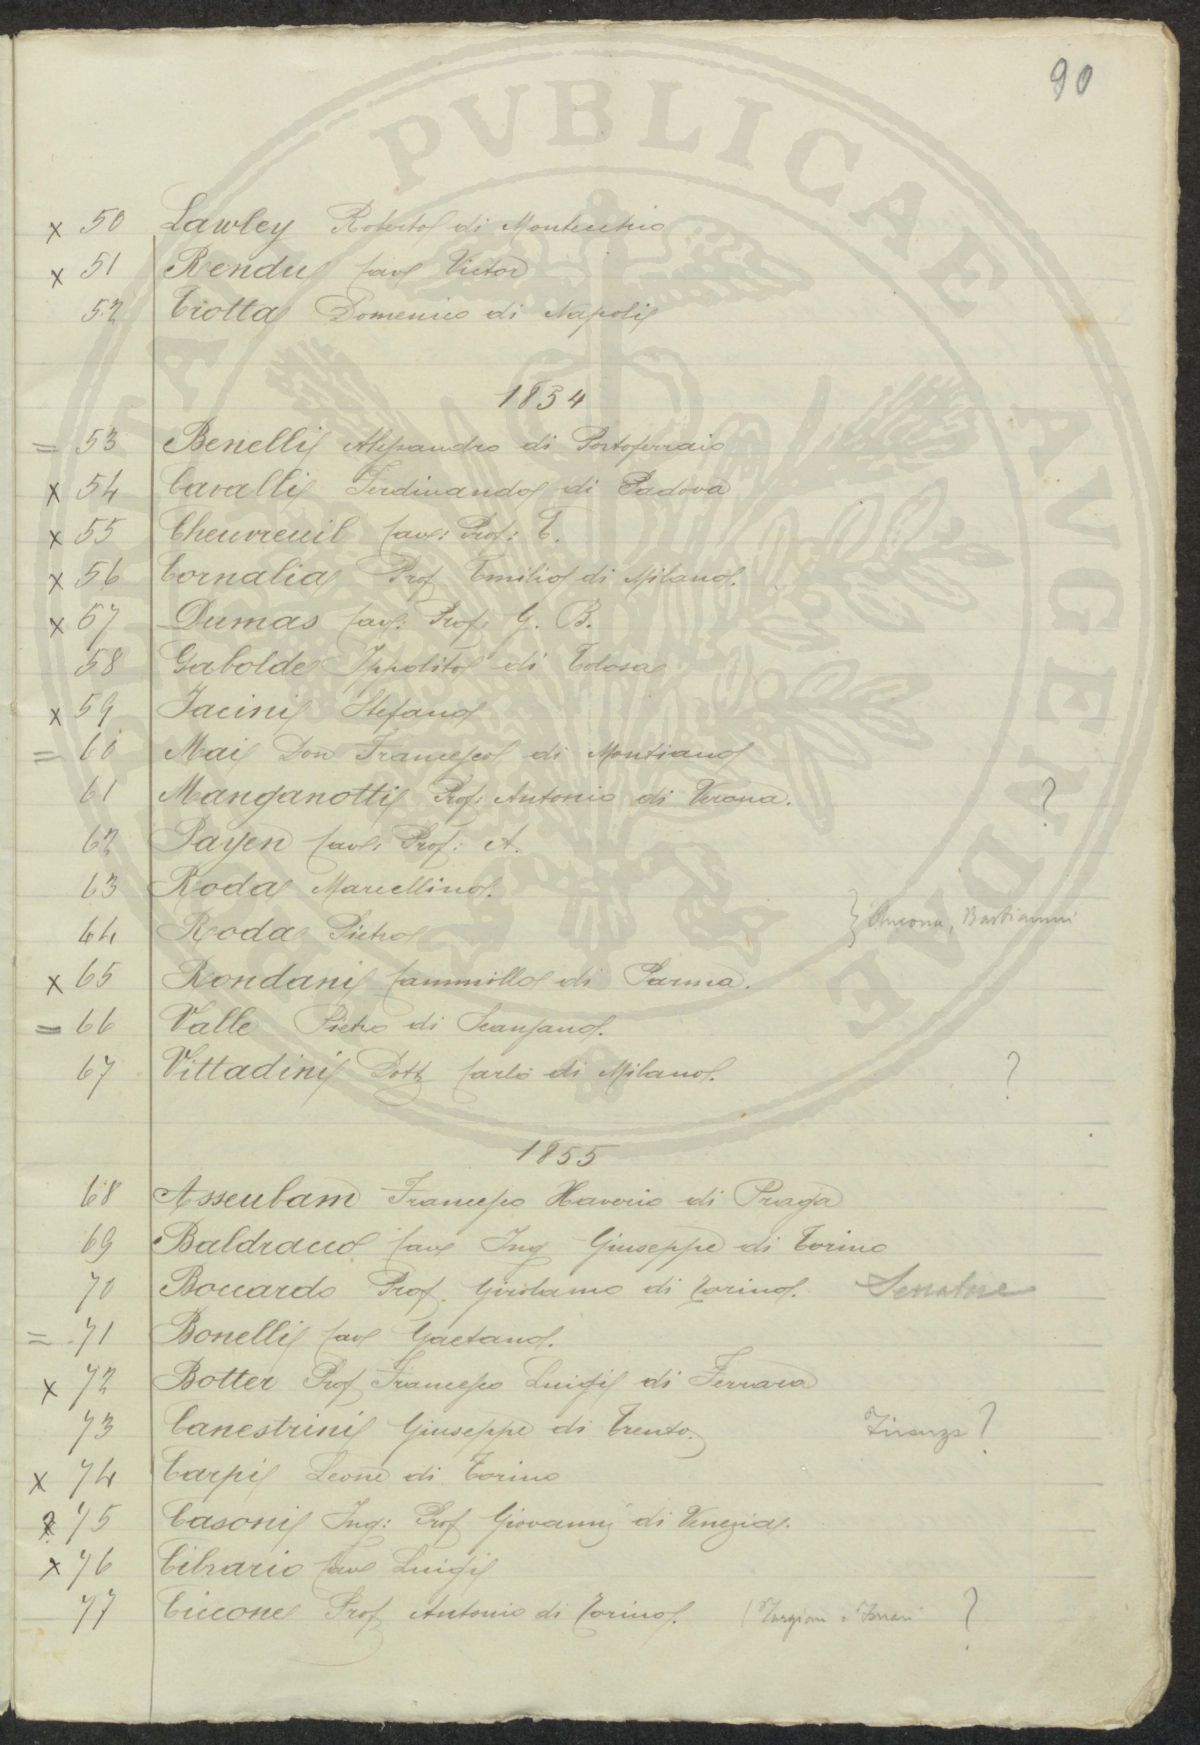 90
x 50 Lawley Roberto di Montecchio
x 51 Rendu Cav Victor
52 Trotta Domenico di Napoli
1854
= 53 Benelli Alessandro di Portoferraio
x 54 Cavalli Ferdinando di Padova
x 55 Cheuvreuil Cav: Prof: E.
x 56 Cornalia Prof Emilio di Milano.
x 57 Dumas Cav. Prof: G. B.
58 Gabolde Ippolito di Tolosa
x 59 Jacini Stefano
= 60 Mai Don Francesco di Montiano
61 Manganotti Prof: Antonio di Verona. ?
62 Payen Cav. Prof: A.
63 Roda Marcellino.
} Ancona, Bastianini
64 Roda Pietro
x 65 Rondani Cammillo di Parma.
= 66 Valle Pietro di Scansano.
67 Vittadini Dott Carlo di Milano. ?
1855
68 Asseubam Francesco Xaverio di Praga
69 Baldracco Cav Ing Giuseppe di Torino
70 Boccardo Prof. Girolamo di Torino. Senatore
= 71 Bonelli Cav Gaetano.
x 72 Botter Prof Francesco Luigi di Ferrara
73 Canestrini Giuseppe di Trento. Firenze ?
x 74 Carpi Leone di Torino
x 75 Casoni Ing: Prof Giovanni di Venezia.
x 76 Cibrario Cav Luigi
77 Ciccone Prof Antonio di Torino. ?
PUBLICAE AUGENDAE